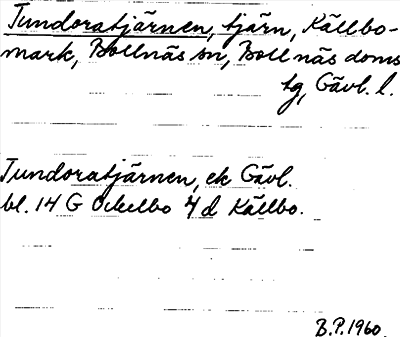 Tundoratjärnen, tjärn, Källbo-
mark, Bollnäs sn, Bollnäs doms
tg, Gävl. l.
Tundoratjärnen, ek Gävl.
bl. 14 G Ockelbo 4 d Källbo.
B.P. 1960.